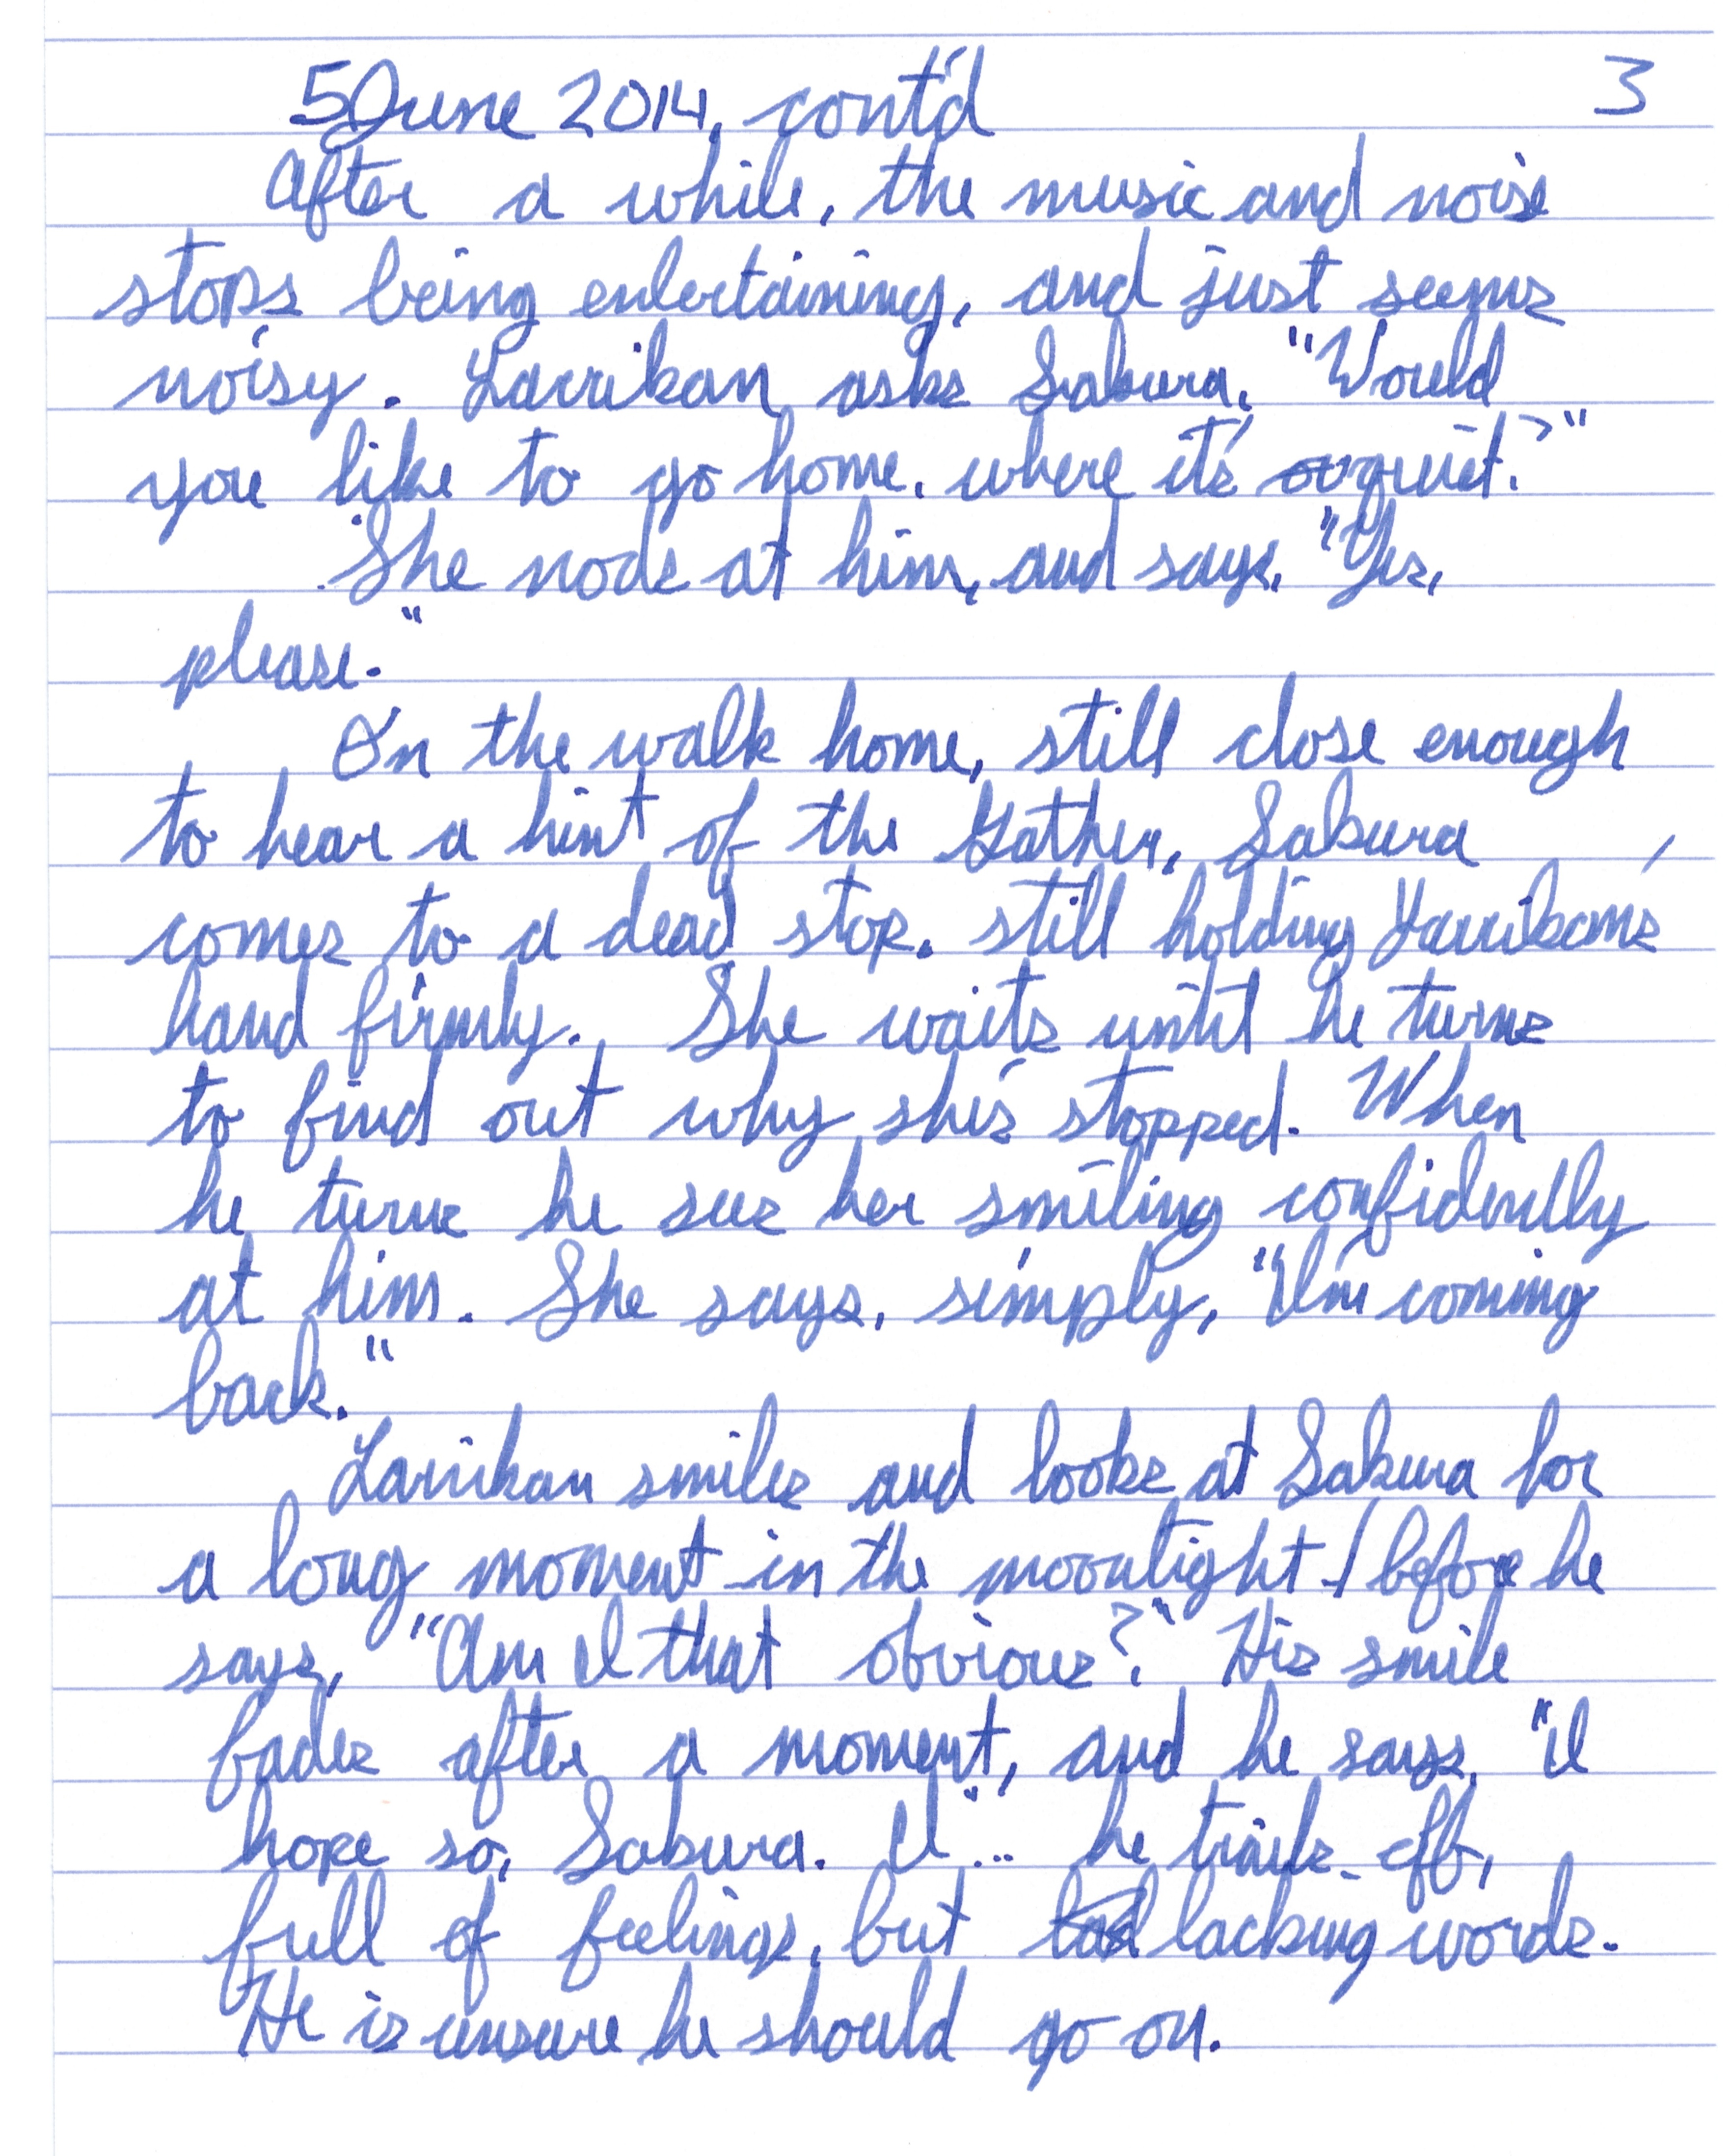 5 June 2014, cont'd 3
After a while, the music and noise
stops being entertaining, and just seems
noisy. Larrikan asks Sakura, "Would
you like to go home, where it's quiet?"
She nods at him, and says, "Yes,
please."
On the walk home, still close enough
to hear a hint of the Gather, Sakura
comes to a dead stop, still holding Larrikan's
hand firmly. She waits until he turns
to find out why she's stopped. When
he turns he sees her smiling confidently
at him. She says, simply, "I'm coming
back."
Larrikan smiles and looks at Sakura for
a long moment in the moonlight before he
says, "Am I that obvious?" His smile
fades after a moment, and he says, "I
hope so, Sakura. I"... he trails off,
full of feelings, but lacking words.
He is unsure he should go on.